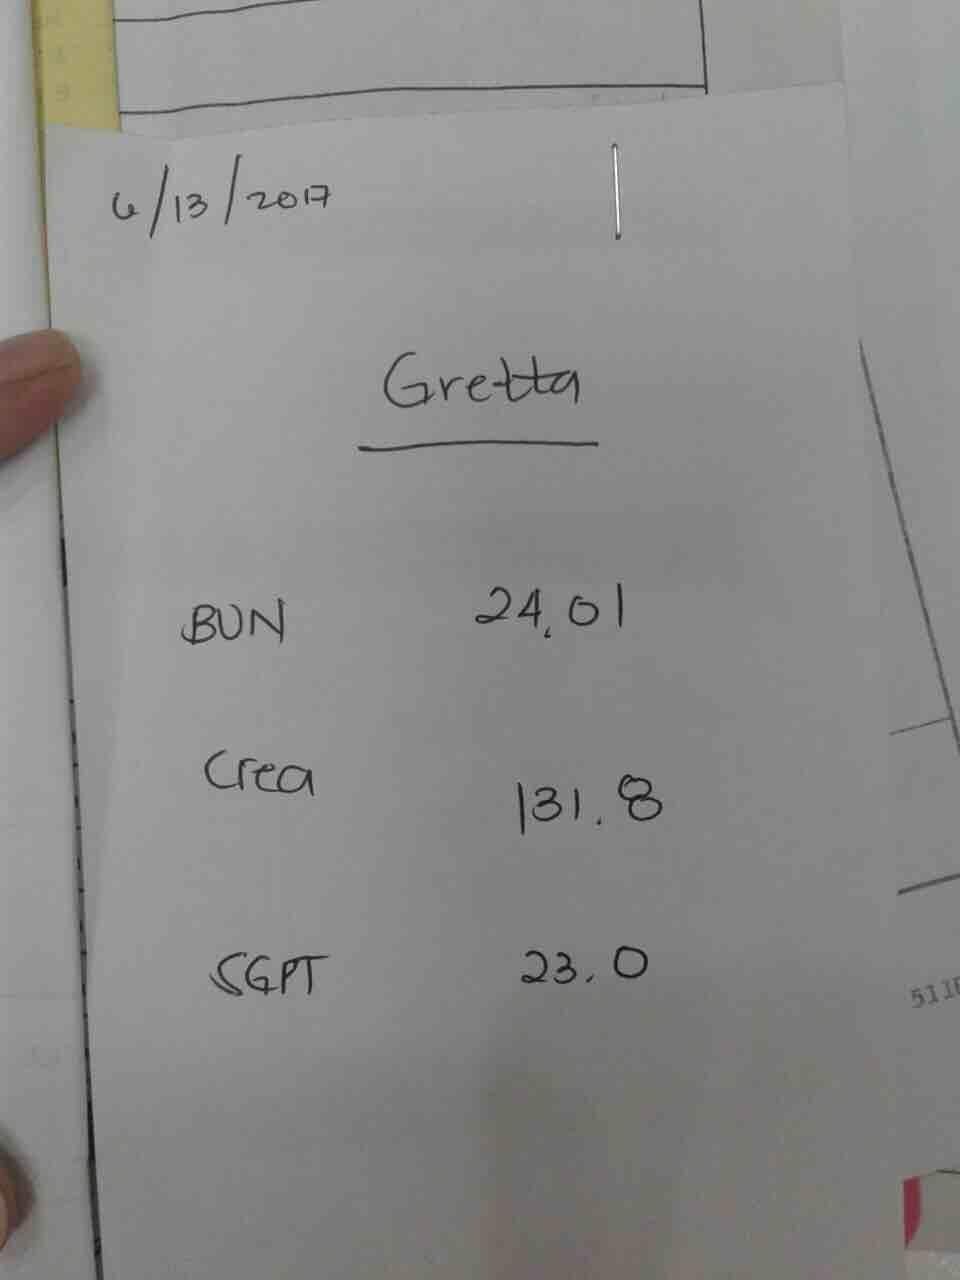 6/13/2017
Gretta
BUN 24.01
Crea 131.8
SGPT 23.0